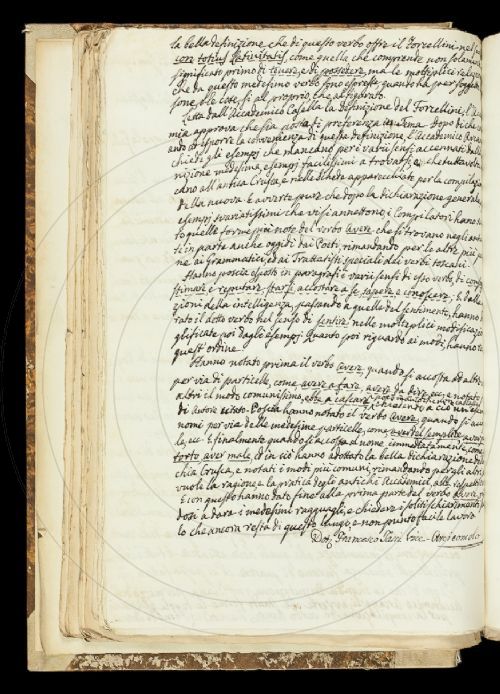 la bella definizione che di questo verbo offre il Forcellini nel suo
con totius Latinitatis, come quella che comprende non solamente
significato primo di tenere, e di possedere, ma le molteplici relazioni
che da questo medesimo verbo sono espresse quanto ha per soggetto
sone, le cose, sì al proprio, che al figurato.
Letta dall'Accademico Casella la definizione del Forcellini, l'
mia approva che sia posta di preferenza in Dopo di che
ando ad esporre la convenienza di questa definizione, l'Accademico
chiedi gli esempj che mancano per i varii sensi accennati dalla
nizione medesima, esempj facilissimi a trovarsi, e che tutta volta
cano all'antica Crusca, e nelle schede apparecchiate per la compilazione
della nuova. E avverte pure che dopo la dichiarazione generale,
esempj svariatissimi che vi si annettono, i Compilatori hanno
to quelle forme più note del verbo avere, che si trovano negli
ti in parte anche oggidì dai Poeti, rimandando per le altre, più
ne ai Grammatici, ed ai Trattatisti speciali dei verbi toscani.
Hanno poscia esposto in paragrafi i varii sensi di esso verbo di
stimare, e reputare, starsi, accostare a se, sapere, e conoscere. E dalle
zioni della intelligenza, passando a quelle del sentimento, hanno
rato il detto verbo nel senso di sentire, nelle molteplici modificazioni
glificate poi dagli esempj. Quanto poi riguardo ai modi, hanno
quest'ordine.
Hanno notato prima il verbo avere, quando si accosta ad altro
per via di particelle, come avere a fare, avere da dire ec., e notato
altri il modo comunissimo,
di autore citato. Poscia hanno notato il verbo avere, quando si
nomi per via delle medesime particelle, come aver del semplice, aver
la, ec. E finalmente quando si accosta al nome immediatamente, come
torto, aver male, ed in ciò hanno adottata la bella dichiarazione
chia Crusca, e notati i modi più comuni, rimandando per gli altri
vuole la ragione, e la pratica degli antichi Accademici, alle
E con questo hanno dato fine alla prima parte del verbo Avere,
dosi a dare i medesimi ragguagli, e chiedere i soliti schiarimenti
lo che ancora resta di questo lungo, e non punto facile lavoro
Dott. Francesco Vice-Arciconsolo